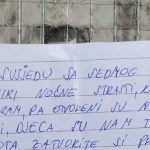 SUSJEDU SA SEDMOG
NOĆNE STRASTI, K
RAM, PA OTVORENI SU N
DJECA SU NAM T
ZATVORITE SI PR